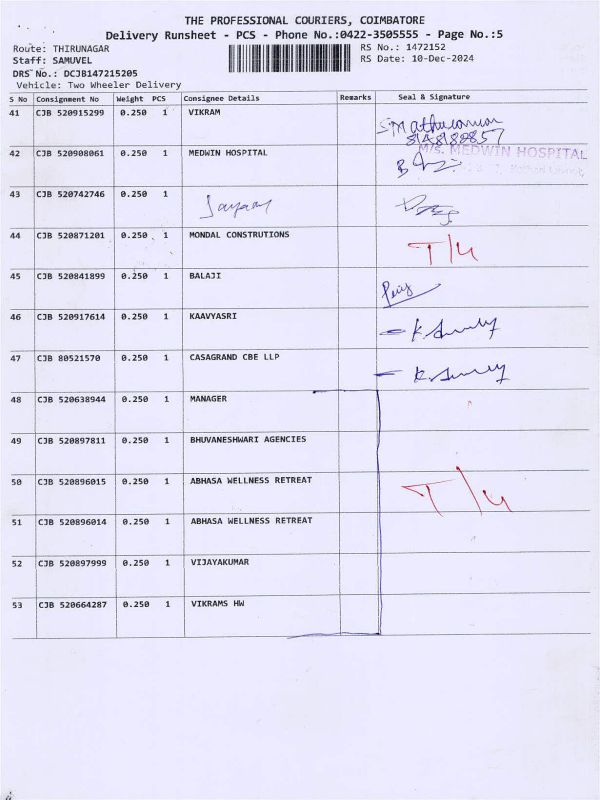 THE PROFESSIONAL COURIERS, COIMBATORE
Delivery Runsheet - PCS - Phone No.:0422-3505555 - Page No.:5
Route: THIRUNAGAR RS No.: 1472152
Staff: SAMUVEL RS Date: 10-Dec-2024
DRS No.: DCJB147215205
Vehicle: Two Wheeler Delivery
S No Consignment No Weight PCS Consignee Details Remarks Seal & Signature
41 CJB 520915299 0.250 1 VIKRAM
42 CJB 520908061 0.250 1 MEDWIN HOSPITAL M/s. MEDWIN HOSPITAL
43 CJB 520742746 0.250 1
44 CJB 520871201 0.250 1 MONDAL CONSTRUTIONS T/4
45 CJB 520841899 0.250 1 BALAJI
46 CJB 520917614 0.250 1 KAAVYASRI
47 CJB 80521570 0.250 1 CASAGRAND CBE LLP
48 CJB 520638944 0.250 1 MANAGER
49 CJB 520897811 0.250 1 BHUVANESHWARI AGENCIES
50 CJB 520896015 0.250 1 ABHASA WELLNESS RETREAT T/4
51 CJB 520896014 0.250 1 ABHASA WELLNESS RETREAT
52 CJB 520897999 0.250 1 VIJAYAKUMAR
53 CJB 520664287 0.250 1 VIKRAMS HW